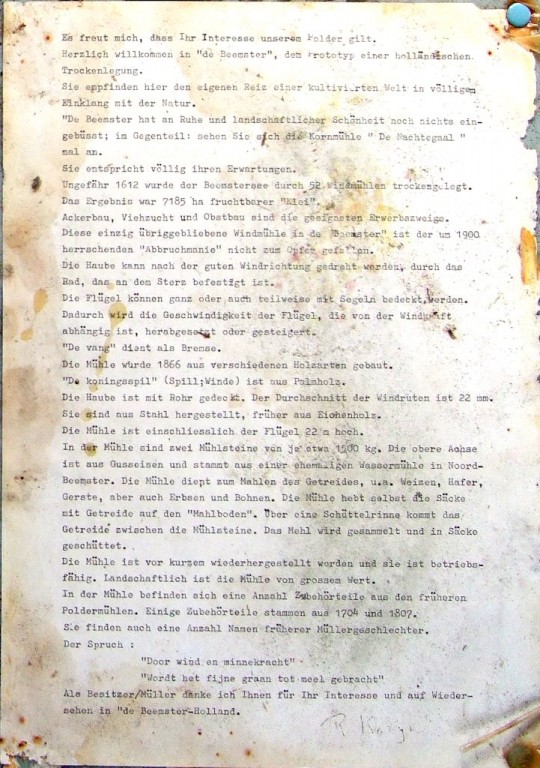 Es freut mich, dass Ihr Interesse unserem Polder gilt.
Herzlich willkommen in "de Beemster", dem Prototyp einer holländischen
Trockenlegung.
Sie empfinden hier den eigenen Reiz einer kultivierten Welt in völligem
Einklang mit der Natur.
"De Beemster hat an Ruhe und landschaftlicher Schönheit noch nichts ein-
gebüsst; im Gegenteil: sehen Sie sich die Kornmühle " De Nachtegaal "
mal an.
Sie entspricht völlig ihren Erwartungen.
Ungefähr 1612 wurde der Beemstersee durch 52 Windmühlen trockengelegt.
Das Ergebnis war 7185 ha fruchtbarer "Klei".
Ackerbau, Viehzucht und Obstbau sind die geeigasten Erwerbszweige.
Diese einzig übriggebliebene Windmühle in de "Beemster" ist der um 1900
herrschenden "Abbruchmanie" nicht zum Opfer gefallen.
Die Haube kann nach der guten Windrichtung gedreht werden, durch das
Rad, das an dem Sterz befestigt ist.
Die Flügel können ganz oder auch teilweise mit Segeln bedeckt werden.
Dadurch wird die Geschwindigkeit der Flügel, die von der Windkraft
abhängig ist, herabgesetzt oder gesteigert.
"De vang" dient als Bremse.
Die Mühle wurde 1866 aus verschiedenen Holzarten gebaut.
"De koningsspil" (Spill;Winde) ist aus Palmholz.
Die Haube ist mit Rohr gedeckt. Der Durchschnitt der Windruten ist 22 mm.
Sie sind aus Stahl hergestellt, früher aus Eichenholz.
Die Mühle ist einschliesslich der Flügel 22 m hoch.
In der Mühle sind zwei Mühlsteine von je etwa 1500 kg. Die obere Achse
ist aus Gusseisen und stammt aus einer ehemaligen Wassermühle in Noord-
Beemster. Die Mühle dient zum Mahlen des Getreides, u.a. Weizen, Hafer,
Gerste, aber auch Erbsen und Bohnen. Die Mühle hebt selbst die Säcke
mit Getreide auf den "Mahlboden". Über eine Schüttelrinne kommt das
Getreide zwischen die Mühlsteine. Das Mehl wird gesammelt und in Säcke
geschüttet.
Die Mühle ist vor kurzem wiederhergestellt worden und sie ist betriebs-
fähig. Landschaftlich ist die Mühle von grossem Wert.
In der Mühle befinden sich eine Anzahl Zubehörteile aus den früheren
Poldermühlen. Einige Zubehörteile stammen aus 1704 und 1807.
Sie finden auch eine Anzahl Namen früherer Müllergeschlechter.
Der Spruch :
"Door wind en minnekracht"
"Wordt het fijne graan tot meel gebracht"
Als Besitzer/Müller danke ich Ihnen für Ihr Interesse und auf Wieder-
sehen in "de Beemster-Holland.